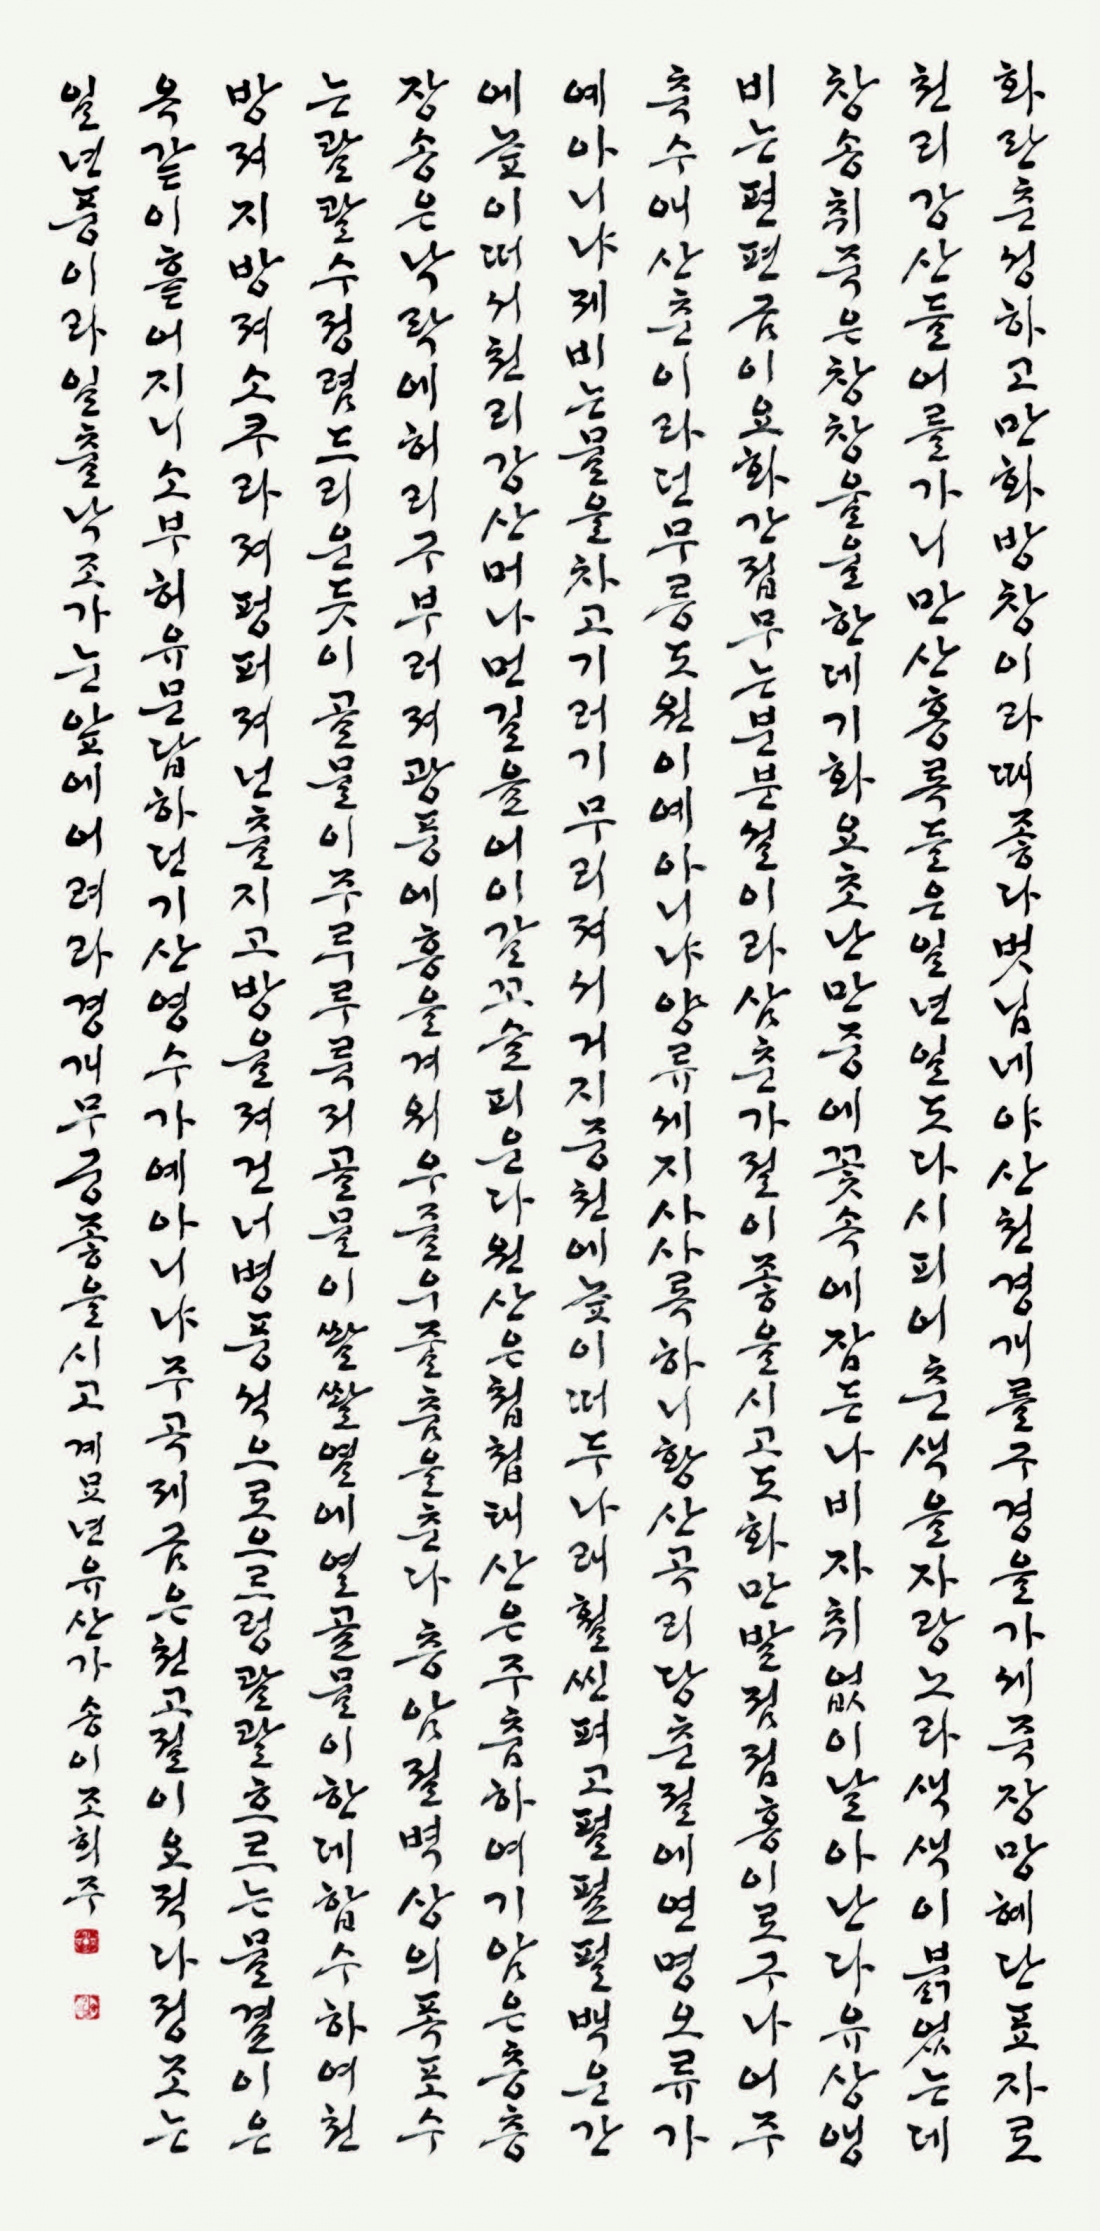 화란춘성하고만화방창이라때좋다벗님네야산천경개를구경을가세죽장망혜단표자로
천리강산들어를가니만산홍록들은일년일도다시피어춘색을자랑노라색색이붉었는데
창송취죽은창창울울한데기화요초난만중에꽃속에잠든나비자취없이날아난다유상앵
비는편편금이요화간접무는분분설이라삼춘가절이좋을시고도화만발점점홍이로구나어주
축수애산춘이라던무릉도원이예아니냐양류세지사사록하니황산곡리당춘절에연명오류가
예아니냐제비는물을차고기러기무리져서거지중천에높이떠두나래훨씬펴고펄펄펄백운간
에높이떠서천리강산머나먼길을어이갈꼬슬피운다원산은첩첩태산은주춤하여기암은층층
장송은낙락에허리구부러져광풍에흥을겨워우줄우줄춤을춘다층암절벽상의폭포수
는콸콸수정렴드리운듯이골물이주루루룩저골물이쏼쏼열에열골물이한데합수하여천
방져지방져소쿠라져펑퍼져넌출지고방울져건너병풍석으로으르렁콸콸흐르는물결이은
옥같이흩어지니소부허유문답하던기산영수가예아니냐주곡제금은천고절이요적다정조는
일년풍이라일출낙조가눈앞에어려라경개무궁좋을시고계묘년유산가송이조희주